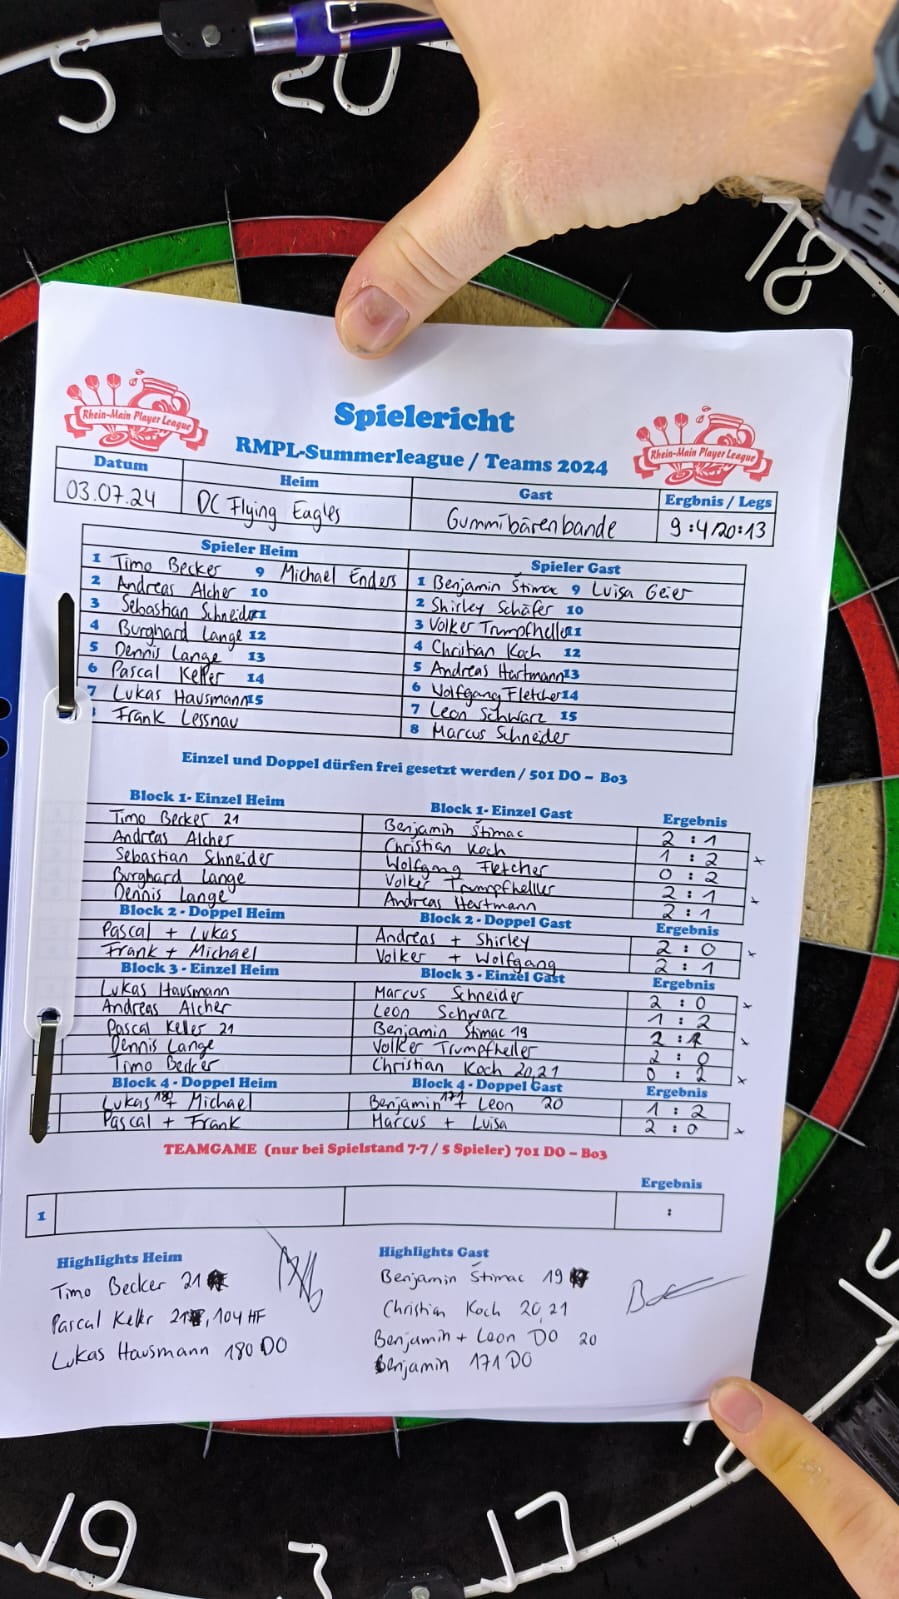 5
20
18
Rhein-Main Player League
Rhein-Main Player League
Spielericht
RMPL-Summerleague / Teams 2024
Datum Heim Gast Ergbnis / Legs
03.07.24 DC Flying Eagles Gummibärenbande 9:4/20:13
Spieler Heim Spieler Gast
1 Timo Becker 9 Michael Enders 1 Benjamin Štimac 9 Luisa Geier
2 Andreas Alcher 10 2 Shirley Schäfer 10
3 Sebastian Schneider 11 3 Volker Trumpfheller 11
4 Burghard Lange 12 4 Christian Koch 12
5 Dennis Lange 13 5 Andreas Hartmann 13
6 Pascal Keller 14 6 Wolfgang Fletcher 14
7 Lukas Hausmann 15 7 Leon Schwarz 15
Frank Lessnau 8 Marcus Schneider
Einzel und Doppel dürfen frei gesetzt werden / 501 DO - Bo3
Block 1- Einzel Heim Block 1- Einzel Gast Ergebnis
Timo Becker 21 Benjamin Štimac 2 : 1
Andreas Alcher Christian Koch 1 : 2 x
Sebastian Schneider Wolfgang Fletcher 0 : 2
Burghard Lange Volker Trumpfheller 2 : 1 x
Dennis Lange Andreas Hartmann 2 : 1
Block 2 - Doppel Heim Block 2 - Doppel Gast Ergebnis
Pascal + Lukas Andreas + Shirley 2 : 0
Frank + Michael Volker + Wolfgang 2 : 1 x
Block 3 - Einzel Heim Block 3 - Einzel Gast Ergebnis
Lukas Hausmann Marcus Schneider 2 : 0 x
Andreas Alcher Leon Schwarz 1 : 2
Pascal Keller 21 Benjamin Štimac 19 2 : x
Dennis Lange Volker Trumpfheller 2 : 0
Timo Becker Christian Koch 20,21 0 : 2 x
Block 4 - Doppel Heim Block 4 - Doppel Gast Ergebnis
Lukas 180 + Michael Benjamin 171 + Leon 20 1 : 2
Pascal + Frank Marcus + Luisa 2 : 0 x
TEAMGAME (nur bei Spielstand 7-7 / 5 Spieler) 701 DO - Bo3
Ergebnis
1 :
Highlights Heim Highlights Gast
Timo Becker 21 Benjamin Štimac 19
Pascal Keller 21, 104 HF Christian Koch 20,21
Lukas Hausmann 180 DO Benjamin + Leon DO 20
Benjamin 171 DO
19
3
17